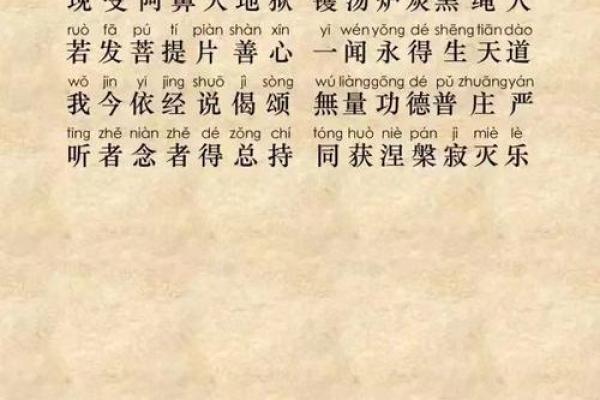 现受阿鼻大地狱 镬汤炉炭黑绳人
ruò fā pú tí piàn shàn xīn yì wén yǒng dé shēng tiān dào
若发菩提片善心 一闻永得生天道
wǒ jīn yī jīng shuō jì sòng wú liàng gōng dé pǔ zhuāng yán
我今依经说偈颂 無量功德普庄严
tīng zhě niàn zhě dé zǒng chí tóng huò niè pán jì miè lè
听者念者得总持 同获涅槃寂灭乐